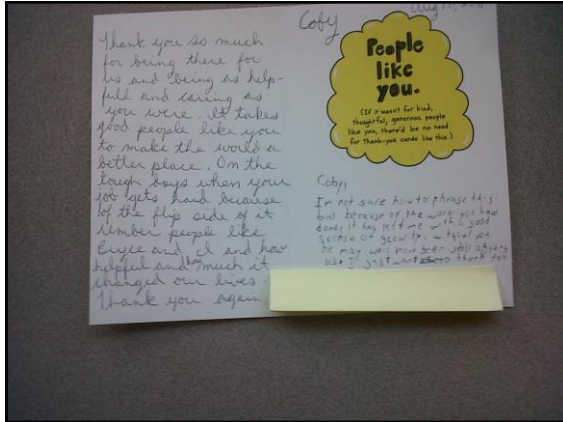 Thank you so much
for being there for
us and being as help-
full and caring as
you were. It takes
good people like you
to make the world a
better place. On the
tough days when your
job gets hard because
of the flip side of it
rember people like
and I and how
helpful and how much it
changed our lives.
Thank you again
Coby
Aug
People
like
you.
(If it wasn't for kind,
thoughtful, generous people
like you, there'd be no need
for thank-you cards like this.)
Coby,
I'm not sure how to phrase this
but because of the work you have
done, it has left me with a good
sense of security, without you
he may well have still
I just want to thank you